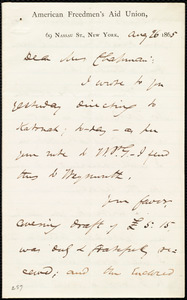 American Freedmen's Aid Union,
69 Nassau St., New York. Aug 26 1865
Dear Mrs Chapman:
I wrote to you
yesterday directing to
Katonah; to-day – as per
your note to W.P.G. – I send
this to Weymouth.
Your favor
covering Draft of £5.15
was duly & gratefully re-
ceived; and the enclosed